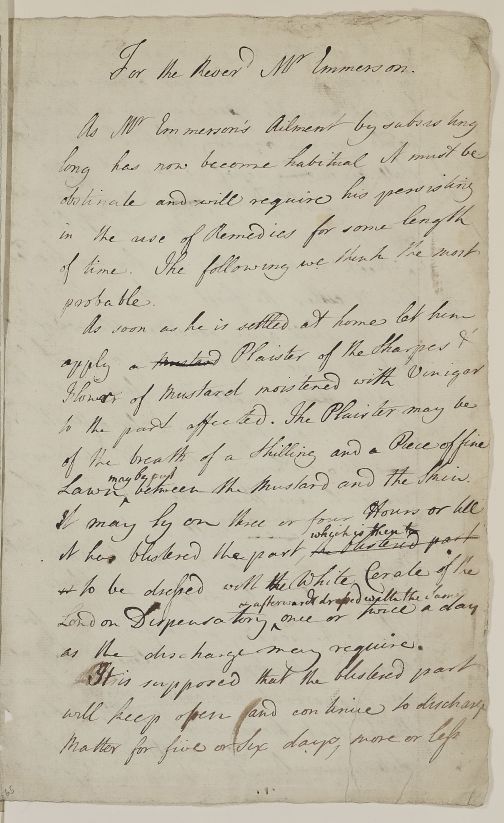 For the Rever'd Mr Emmerson.
As Mr Emmerson's Ailment by subsisting
long has now become habitual it must be
obstinate and will require his persisting
in the use of Remedies for some length
of time. The following we think the most
probable.
As soon as he is settled at home let him
apply a Mustard Plaister of the Sharpest
Flower of Mustard moistened with Vinigar
to the part affected. The Plaister may be
of the breath of a Shilling and a Piece of fine
may be put
Lawn ^ between the Mustard and the Skin.
It may ly on three or four Hours or till
which is then to
it has blistered the part the blistered part
to be dressed with the White Cerate of the
or afterwards dressed with the same
London Dispensatory ^ once or twice a day
as the discharge may require.
It is supposed that the blistered part
will keep open and continue to discharge
Matter for five or six days, more or less